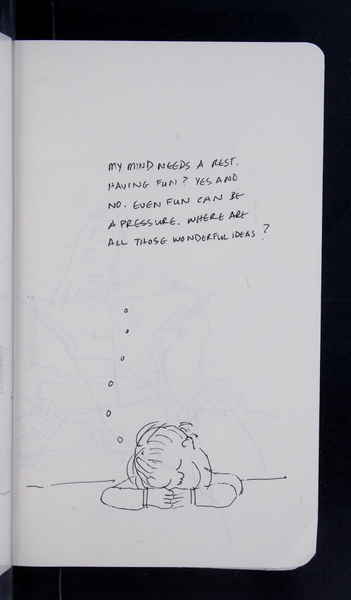 MY MIND NEEDS A REST.
HAVING FUN? YES AND
NO. EVEN FUN CAN BE
A PRESSURE. WHERE ARE
ALL THOSE WONDERFUL IDEAS?